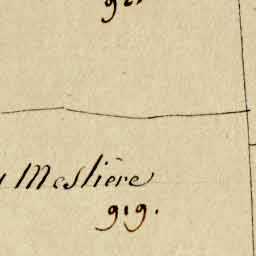 Meslière
919.